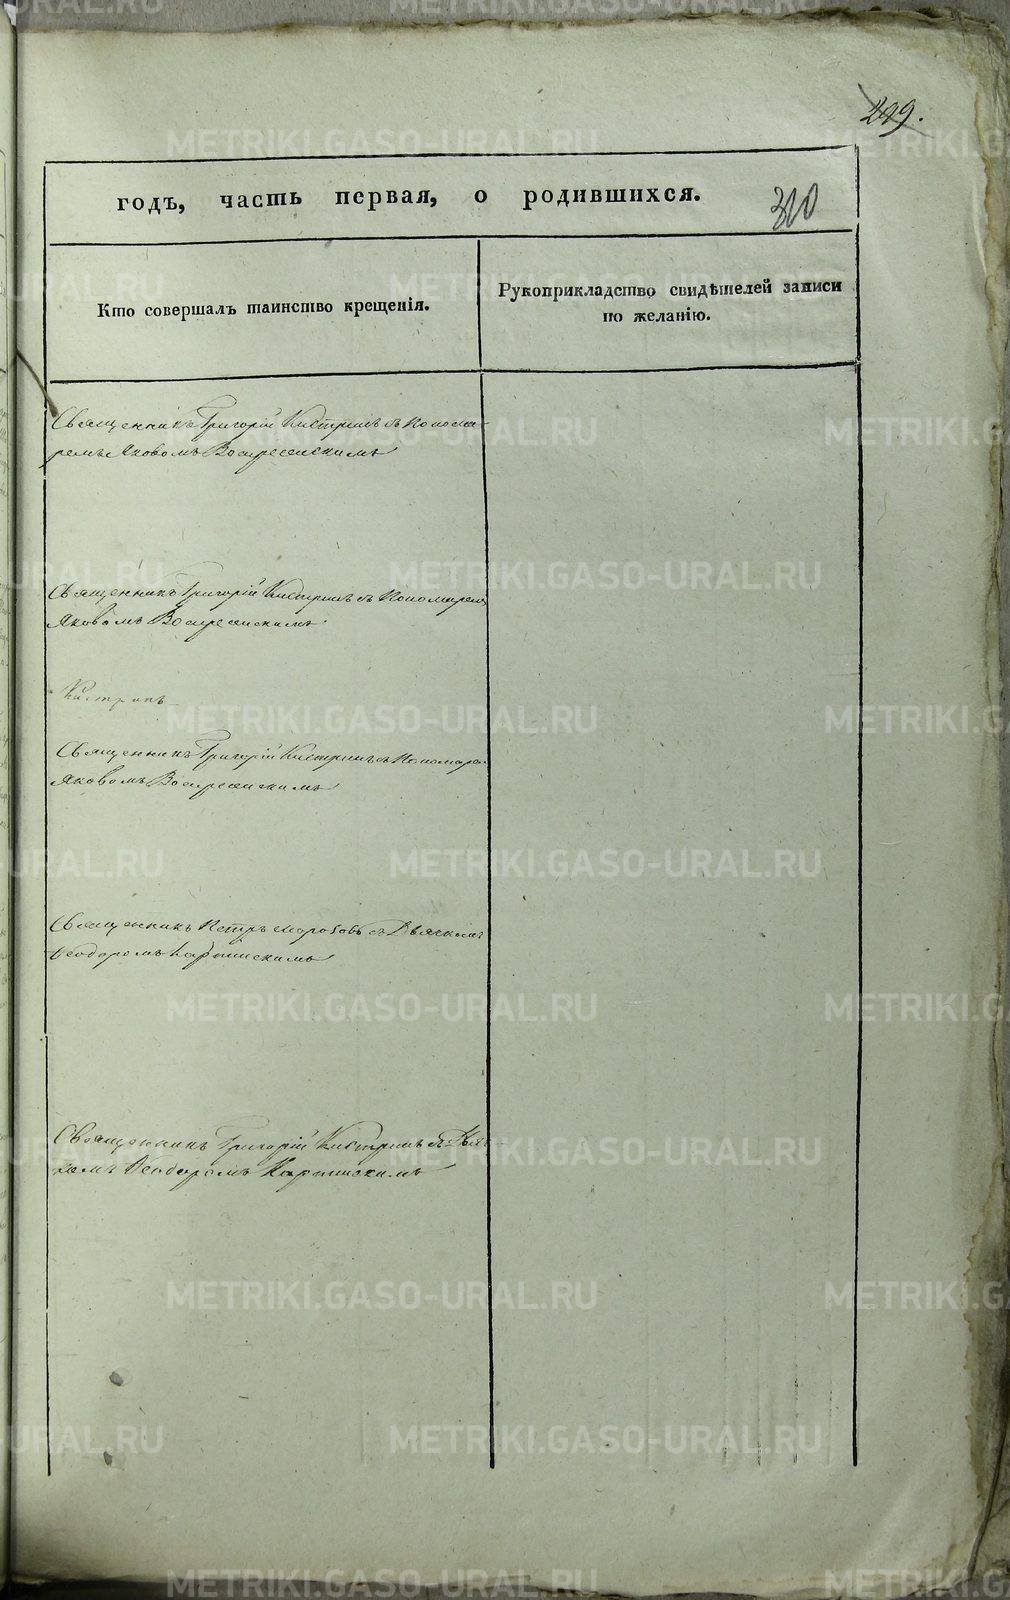 299.
годъ, часть первая, о родившихся.
310
Кто совершалъ таинство крещенія.
Рукоприкладство свидѣтелей записи
по желанію.
Священникъ Григорій Кистринъ съ Понома-
ремъ Яковомъ Воскресенскимъ
Священникъ Григорій Кистринъ съ Пономаремъ
Яковомъ Воскресенскимъ
Кистринъ
Священникъ Григорій Кистринъ съ Пономаре
Яковомъ Воскресенскимъ
Священникъ Петръ Морозовъ съ Дьячкомъ
Ѳеодоромъ Карпинскимъ
Священникъ Григорій Кистринъ съ Дьяч
комъ Ѳеодоромъ Карпинскимъ
METRIKI.GASO-URAL.RU